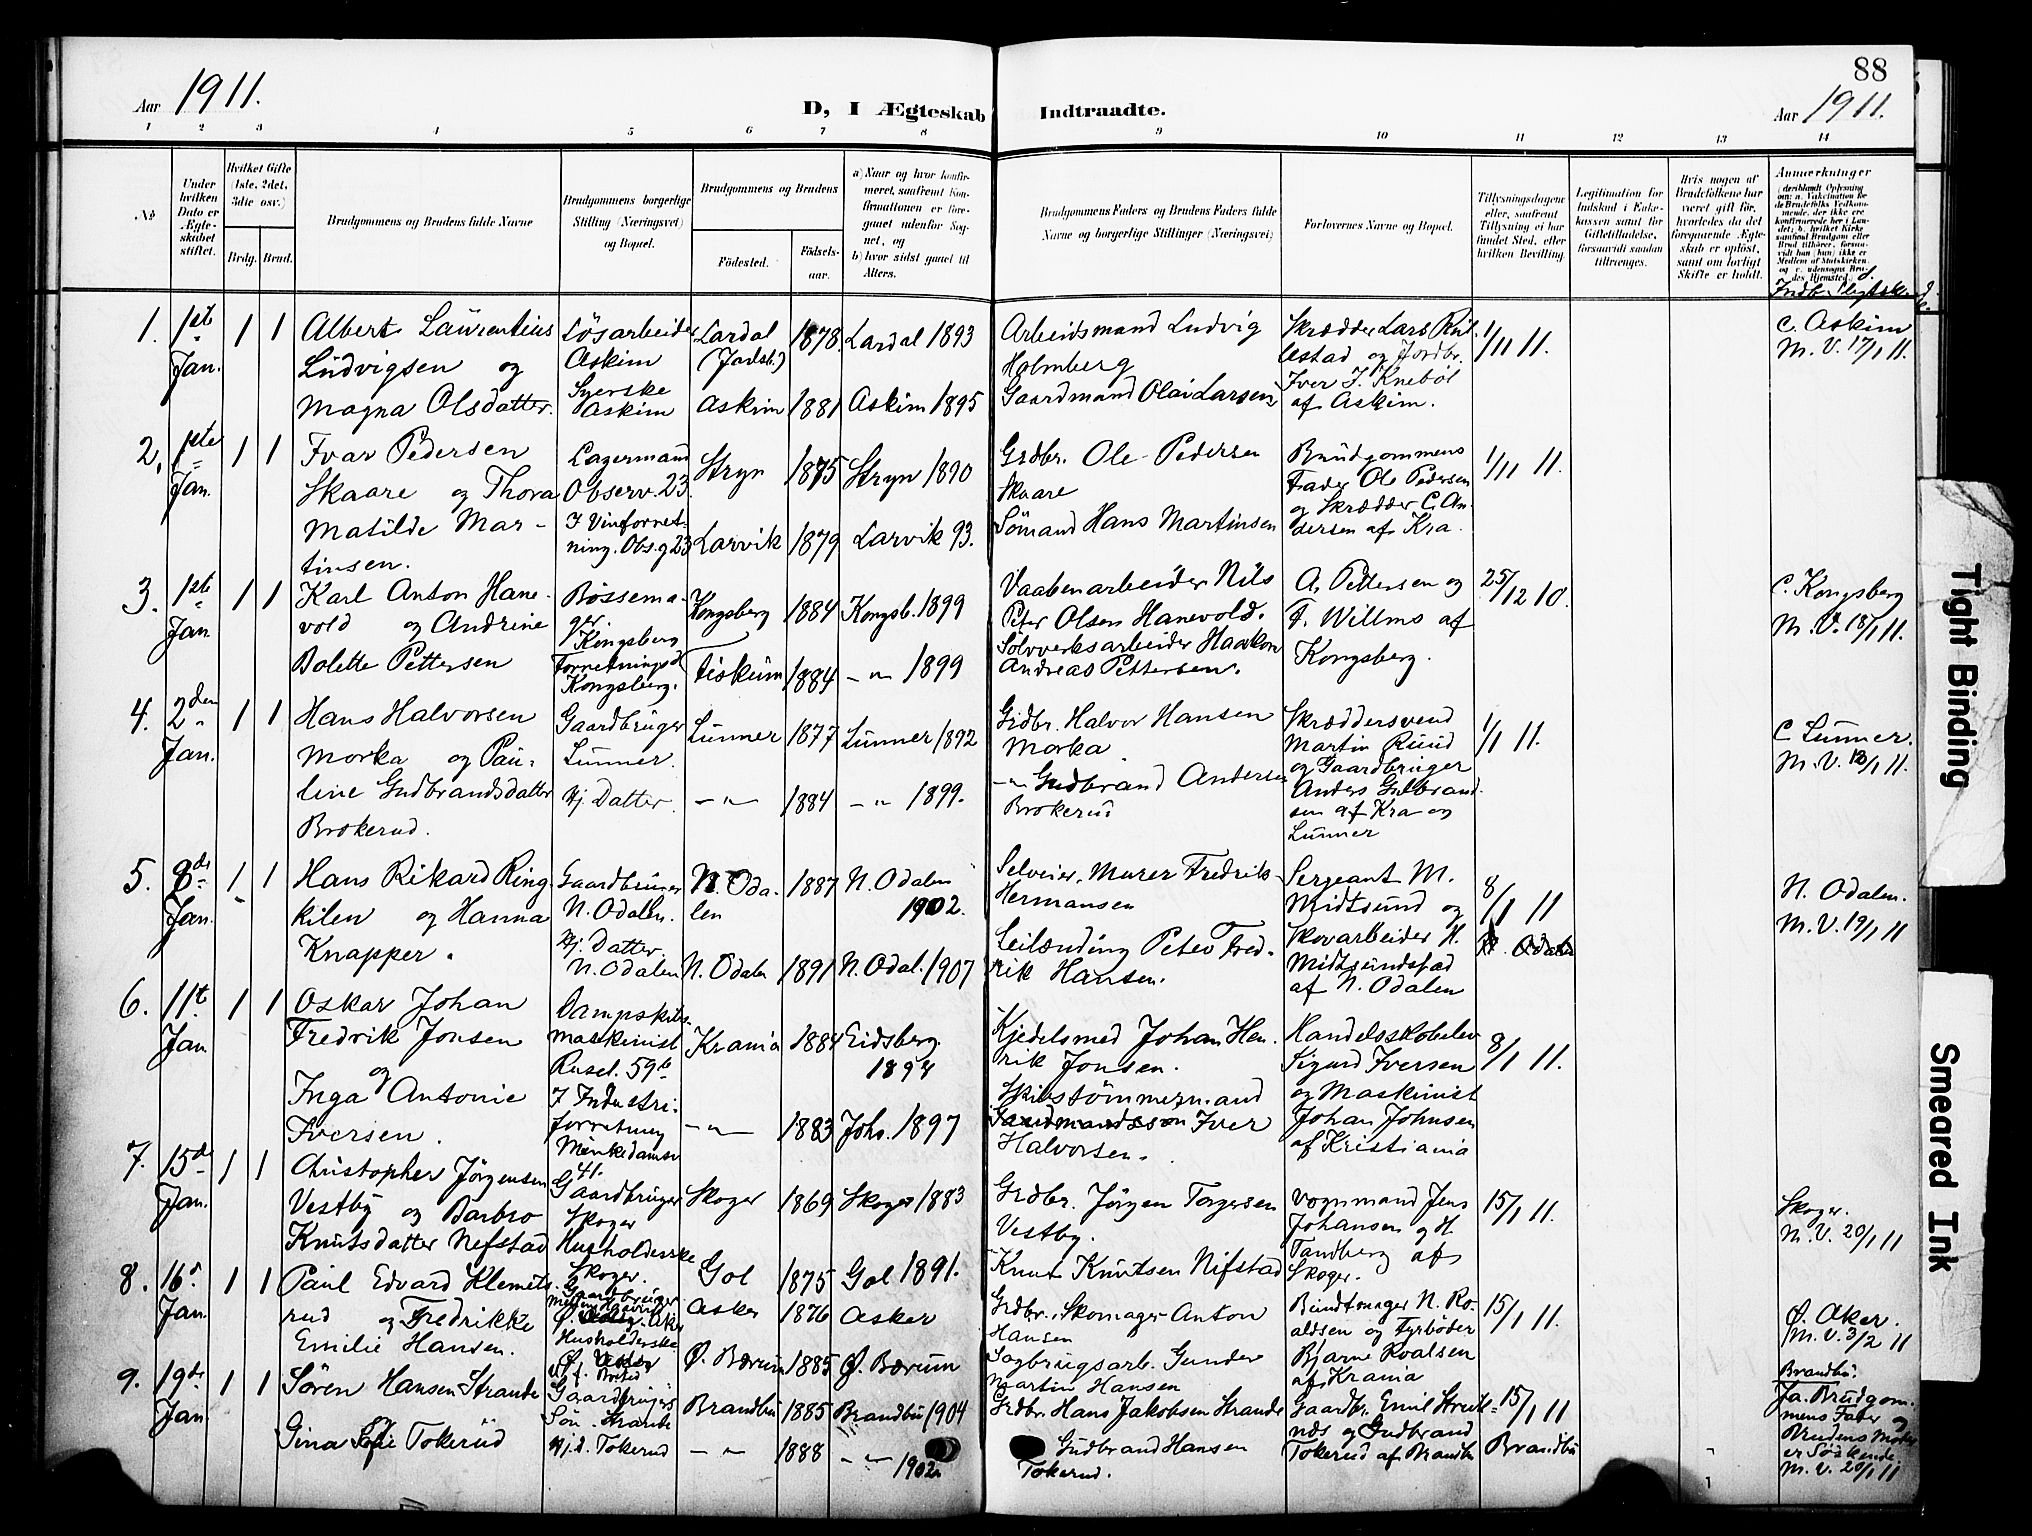 88
Aar 1911.
D, I Ægteskab Indtraadte.
Aar 1911.
1 2 3 4 5 6 7 8 9 10 11 12 13 14
No
Under hvilken Dato er Ægteskabet stiftet.
Hvilket Gifte (1ste, 2det, 3die osv.)
Brdg. Brud.
Brudgommens og Brudens fulde Navne
Brudgommens borgerlige Stilling (Næringsvei) og Bopæl.
Brudgommens og Brudens
Födested.
Födselsaar.
a) Naar og hvor konfirmeret, saafremt Konfirmationen er foregaaet udenfor Sognet, og
b) hvor sidst gaaet til Alters.
Brudgommens Faders og Brudens Faders fulde Navne og borgerlige Stillinger (Næringsvei)
Forlovernes Navne og Bopæl.
Tillysningsdagene eller, saafremt Tillysning ei har fundet Sted, efter hvilken Bevilling.
Legitimation for Indskud i Enkekassen samt for Giftetilladelse, forsaavidt saadan tiltrænges.
Hvis nogen af Brudefolkene har været gift för, hvorledes da det foregaaende Ægteskab er oplöst, samt om lovligt Skifte er holdt.
Anmærkninger
1. 1ste Jan. 1 1
Albert Laurentius
Ludvigsen og
Magna Olsdatter.
Løsarbeider
Askim
Syerske
Askim
Lardal
(Jarlsb.)
Askim
1878.
1881
Lardal 1893
Askim 1895
Arbeidsmand Ludvig
Holmberg
Gaardmand Olai Larsen
Skrædder Lars Rul-
lestad og Jordbr.
Iver I. Knebøl
af Askim.
1/1 11.
C. Askim
M. V. 17/1 11.
2. 1ste Jan. 1 1
Ivar Pedersen
Skaare og Thora
Matilde Mar-
tinsen.
Lagermand
Observ. 23.
I Vinforret-
ning. Obs.g 23
Stryn
Larvik
1875
1879
Stryn 1890
Larvik 93.
Grdbr. Ole Pedersen
Skaare
Sømand Hans Martinsen
Brudgommens
Fader Ole Pedersen
og Skrædder C. An-
dersen af Kra.
1/1 11.
3. 1ste Jan 1 1
Karl Anton Hane-
vold og Andrine
Bolette Pettersen
Bøssema-
ger.
Kongsberg
Forretningsd
Kongsberg.
Kongsberg
Fiskum
1884
1884
Kongsb. 1899
-„- 1899
Vaabenarbeider Nils
Peter Olsen Hanevold.
Sølvverksarbeider Haakon
Andreas Pettersen.
A. Pettersen og
F. Willms af
Kongsberg.
25/12 10.
C. Kongsberg
M. V. 18/1 11.
4. 2den Jan. 1 1
Hans Halvorsen
Morka og Pau-
line Gudbrandsdatter
Brokerud.
Gaardbruger
Lunner.
Hj. Datter.
Lunner
-„-
1877
1884
Lunner 1892
-„- 1899.
Grdbr. Halvor Hansen
Morka
-„- Gudbrand Andersen
Brokerud
Skræddersvend
Martin Ruud
og Gaardbruger
Anders Gulbrand-
sen af Kra og
Lunner
1/1 11.
C Lunner.
M. V. 18/1 11.
5. 8de Jan. 1 1
Hans Rikard Ring-
kilen og Hanna
Knapper.
Gaardbruger
N. Odalen.
Hj. Datter.
N. Odalen
N. Oda-
len
N. Odalen
1887
1891
N. Odalen
1902.
N. Odal. 1907
Selveier, Murer Fredrik
Hermansen
Leilænding Peter Fred-
rik Hansen.
Sergeant M.
Midtsund og
Skovarbeider H.
Midtsundstad
af N. Odalen
8/1 11
N. Odalen
N. Odalen.
M. V. 19/1 11
6. 11te Jan 1 1
Oskar Johan
Fredrik Jonsen
og
Inga Antonie
Iversen.
Dampskibs-
maskinist
Rusel. 59b
I Industri-
forretning
Munkedamsv
41.
Krania
-„-
1884
1883
Eidsberg
Johs. 1897
Kjedelsmed Johan Hen-
rik Jonsen.
Skibstømmermand
Iver
Halvorsen.
Handelsskoleelev
Sigurd Iversen
og Maskinist
Johan Johnsen
af Kristiania
8/1 11.
7. 15de Jan. 1 1
Christopher Jørgensen
Vestby og Barbro
Knutsdatter Nefstad
Gaardbruger
Skoger
Husholderske
Skoger.
Skoger
Gol
1869
1875
Skoger 1883
Gol 1891.
Grdbr. Jörgen Torgersen
Vestby.
Knut Knutsen Nifstad
Vognmand Jens
Johansen og H.
Tandberg af
Skoger.
15/1 11.
Skoger.
M. V. 20/1 11
8. 16de Jan. 1 1
Paul Edvard Klemets-
rud og Fredrikke
Emilie Hansen.
Gaardbruger
Ø. Aker
Husholderske
Asker
Ø. Bærum
1876
1885
Asker
Ø. Bærum
Grdbr. Skomager Anton
Hansen
Sagbrugsarb. Gunder
Martin Hansen
Buntmager N. Ro-
aldsen og Fyrbøder
Bjarne Roalsen
af Krania
15/1 11.
Ø. Aker.
M. V. 3/2 11
9. 19de Jan. 1 1
Sören Hansen Strande
Gina Sofie Tokerud
Gaardbruger
Sön. Strande
Hj. d. Tokerud
Brandbu
-„-
1885
1888
Brandbu 1904
-„- 1902
Grdbr. Hans Jakobsen Strande
Gudbrand Hansen
Tokerud.
Gaardbr. Emil Strube-
nds og Gudbrand
Tokerud af Brandbu
15/1 11
Brandbu
Brandbu.
Ja. Brudgom-
mens Fader
Brudens Moder
er Søskende.
M. V. 20/1 11
Tight Binding
Smeared Ink